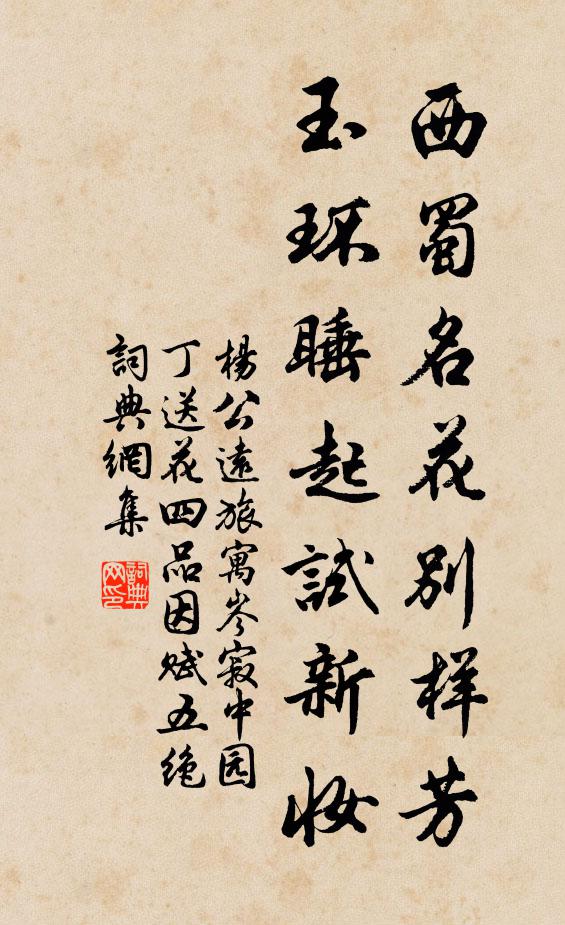 西蜀名花别样芳
玉环睡起試新妝
楊公遠旅寓岑寂中园
丁送花四品因赋五绝
詞典網集
詞典
网印